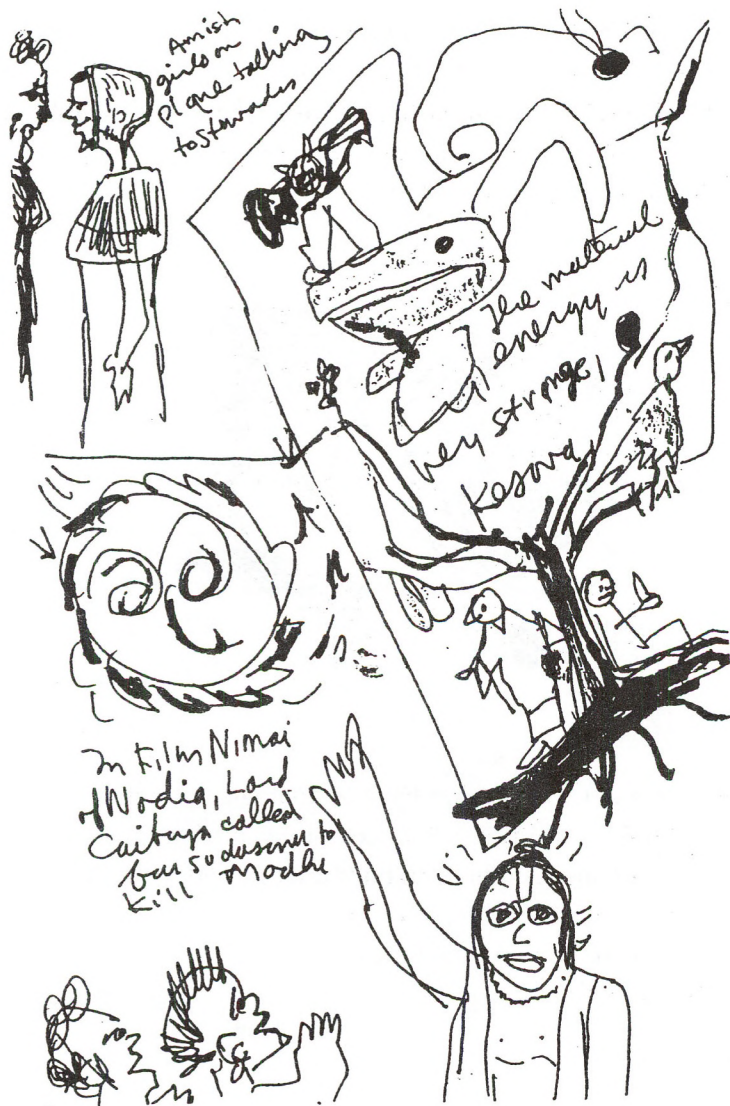 Amish
girls on
plane talking
to stewardess
The material
energy is
very strong,
Kesava
In Film Nimai
of Nadia, Lord
Caitanya called
for Sudarsana to
Kill Madhai